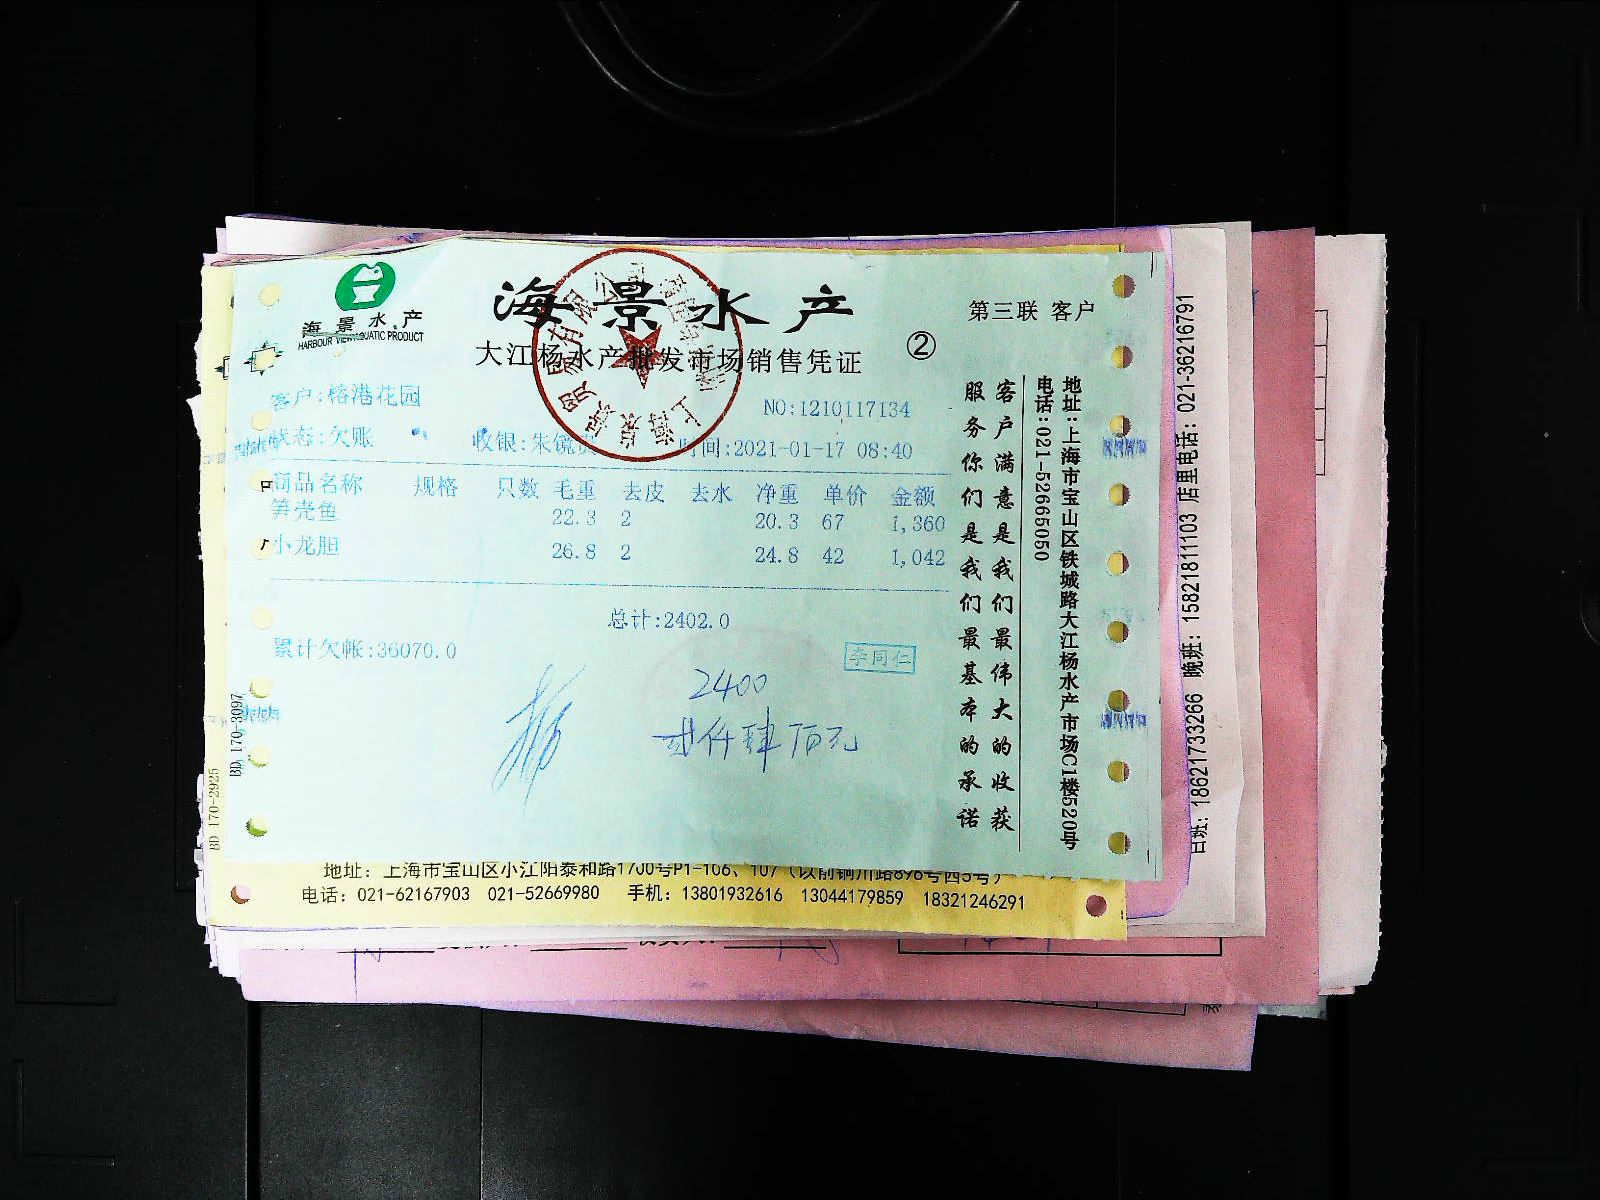 海景水产
HARBOUR VIEW AQUATIC PRODUCT
海景水产
第三联 客户
大江杨水产批发市场销售凭证
②
客户:榕港花园
NO:1210117134
状态:欠账
收银:朱镜
时间:2021-01-17 08:40
商品名称 规格 只数 毛重 去皮 去水 净重 单价 金额
笋壳鱼 22.3 2 20.3 67 1,360
小龙胆 26.8 2 24.8 42 1,042
总计:2402.0
累计欠帐:36070.0
李同仁
2400
贰仟肆佰元
客户满意是我们最伟大的收获
服务你们是我们最基本的承诺
地址:上海市宝山区铁城路大江杨水产市场C1楼520号
电话:021-52665050
BD 170-3097
BD 170-2925
日班: 18621733266 晚班: 15821811103 店里电话: 021-36216791
地址: 上海市宝山区小江阳泰和路1700号P1-106、107（以前铜川路896号西5号）
电话: 021-62167903 021-52669980 手机: 13801932616 13044179859 18321246291